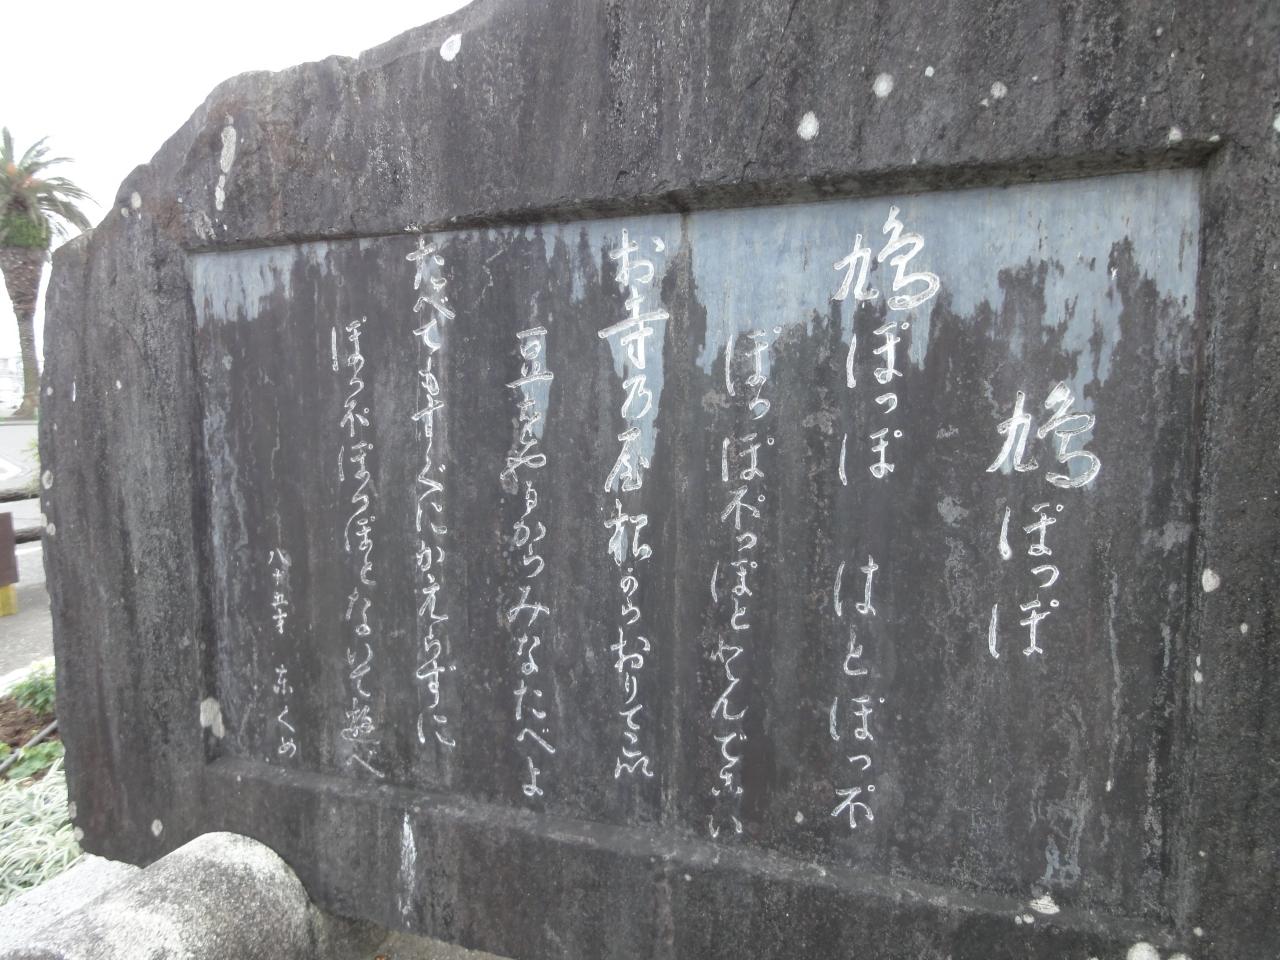 鳩ぽっぽ
鳩ぽっぽ はとぽっぽ
ぽっぽぽっぽととんでこい
お寺の屋根からおりてこい
豆をやるからみなたべよ
たべてもすぐにかえらずに
ぽっぽぽっぽとないて遊べ
八十五才 東くめ